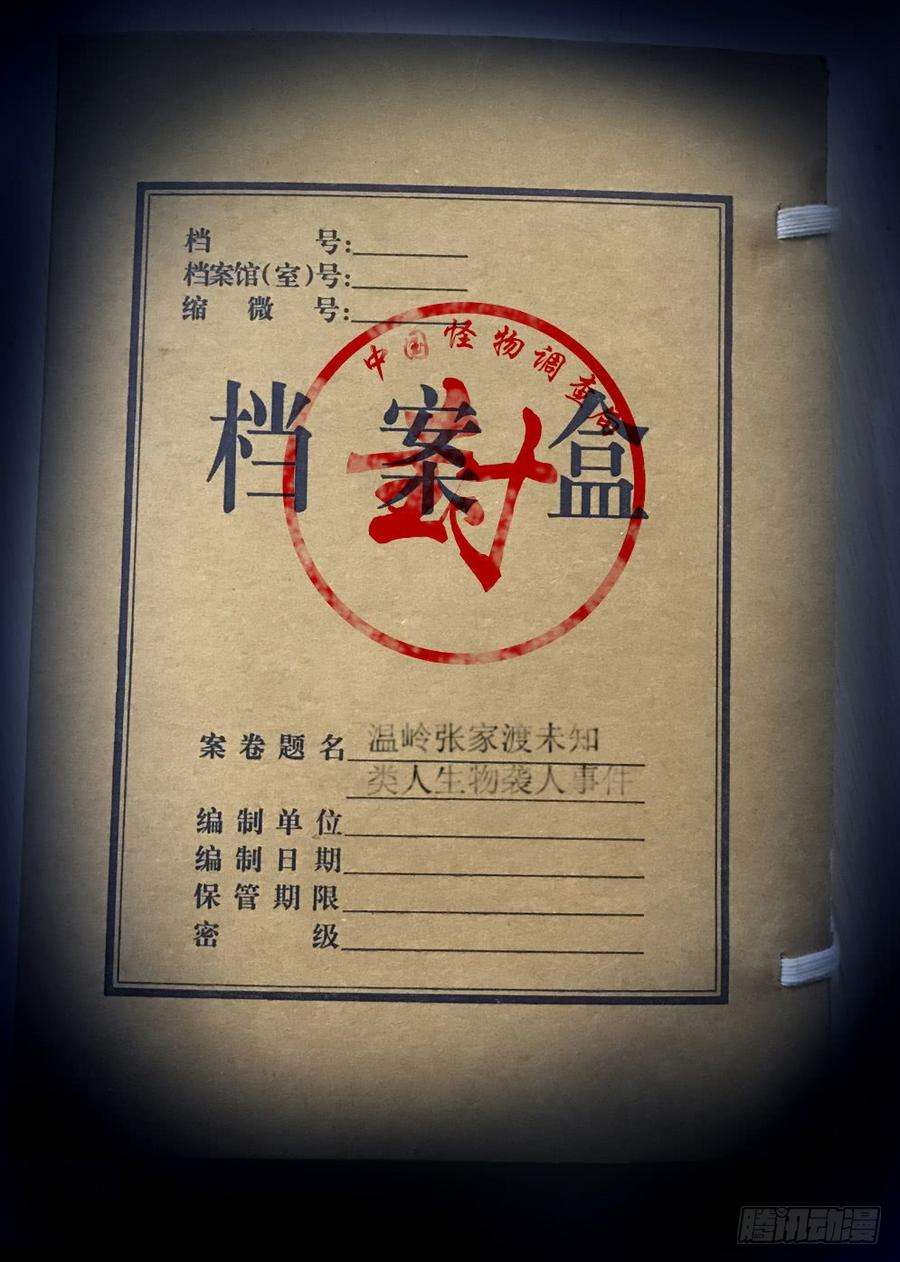 档号:
档案馆(室)号:
缩微号:
中国怪物调查局
档案盒
封
案卷题名 温岭张家渡未知
类人生物袭人事件
编制单位
编制日期
保管期限
密级
腾讯动漫